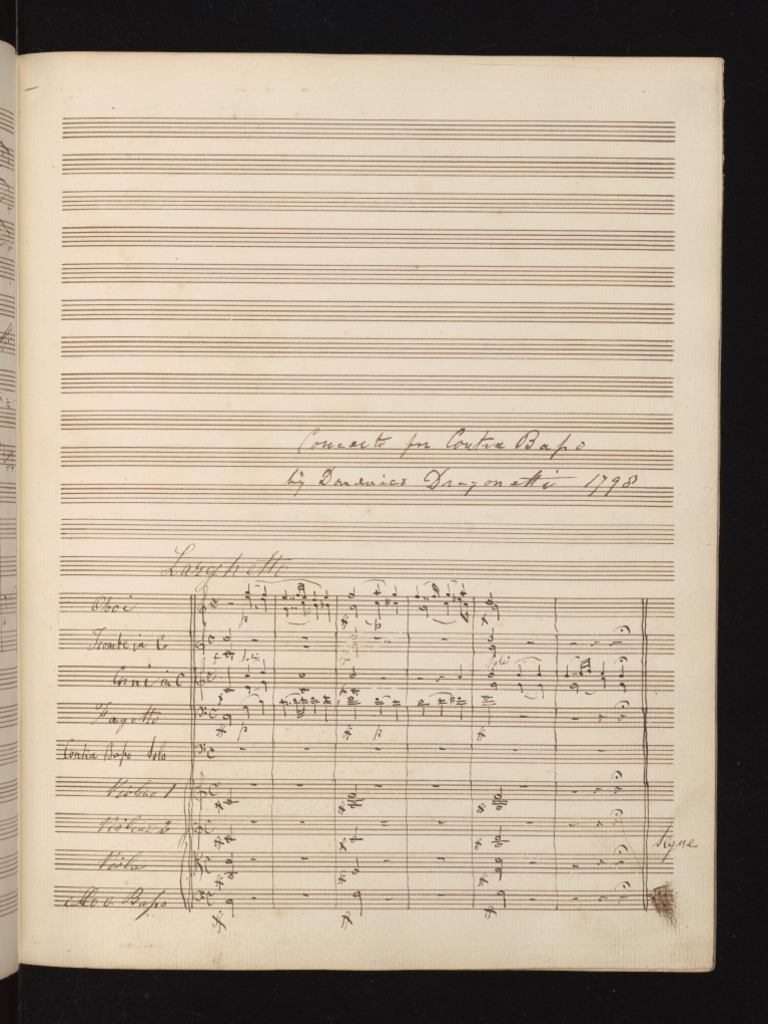 Concerto for Contra Basso
by Domenico Dragonetti 1798
Larghetto
Oboi
Trombe in C
Soli
Corni in C
Soli
Fagotto
Contra Basso Solo
Violino 1
Violino 2
Viola
Segue
Basso